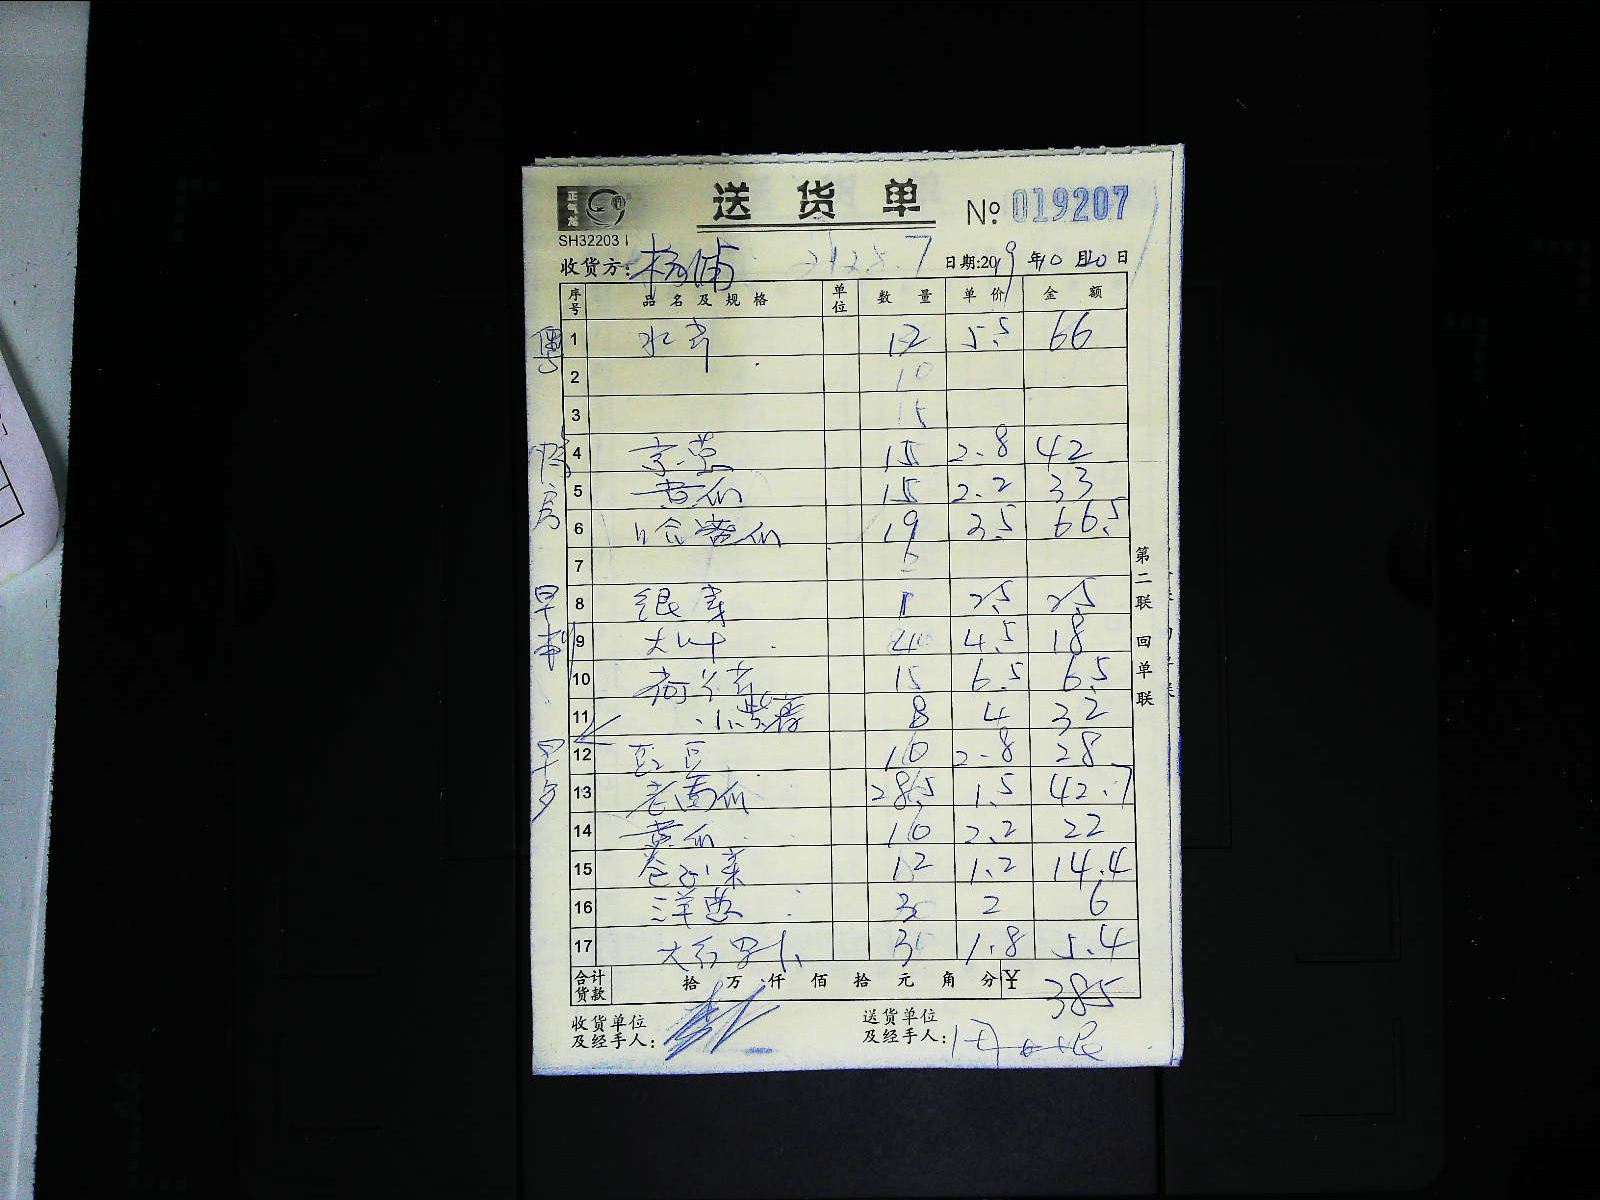 正气花
送货单 No. 019207
SH32203
收货方: 杨浦 2128.7 日期:2019年10月20日
序号 品名及规格 单位 数量 单价 金额
1 水芹 12 5.5 66
2 10
3 15
4 京葱 15 2.8 42
5 黄瓜 15 2.2 33
6 哈密瓜 19 3.5 66.5
7 6
8 银芽 1 2.5 2.5
9 大叶 4 4.5 18
10 荷兰芹 15 6.5 6.5
11 8 4 32
12 豇豆 10 2.8 28
13 老南瓜 28.5 1.5 42.7
14 黄瓜 10 2.2 22
15 卷心菜 12 1.2 14.4
16 洋葱 3 2 6
17 大红罗卜 3 1.8 5.4
合计货款 拾 万 仟 佰 拾 元 角 分 ¥ 385
收货单位及经手人:
送货单位及经手人:
第二联 回单联
房
早
早
夕